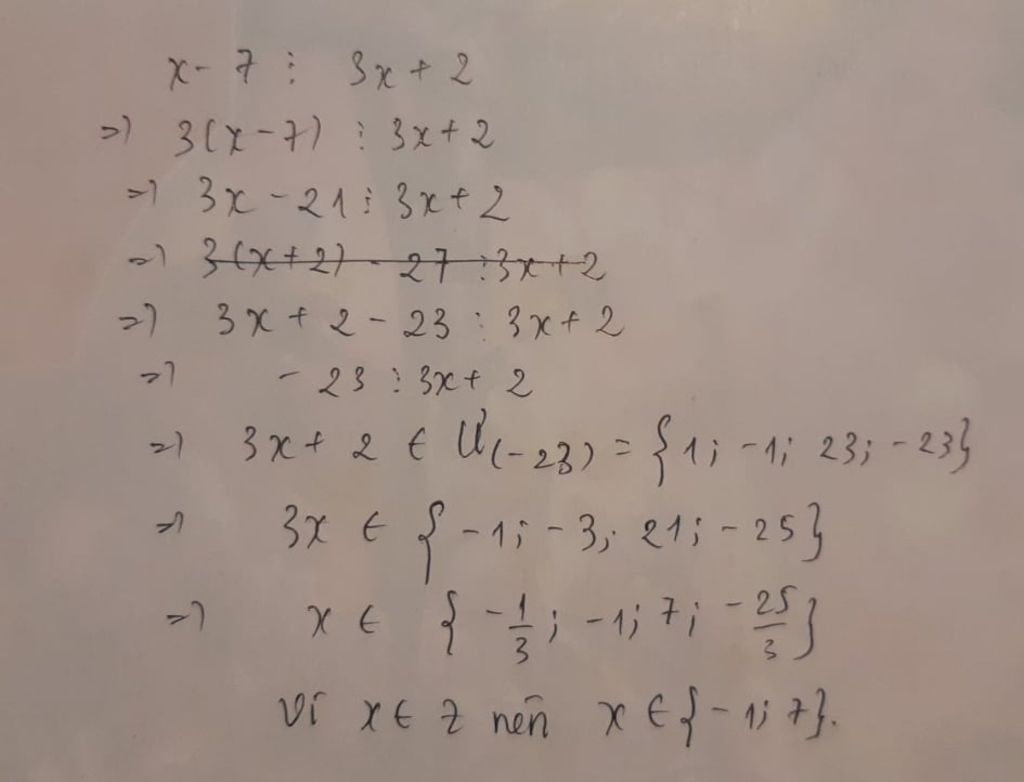 x - 7 ⋮ 3x + 2
=> 3(x - 7) ⋮ 3x + 2
=> 3x - 21 ⋮ 3x + 2
=> 3(x + 2) - 27 ⋮ 3x + 2
=> 3x + 2 - 23 ⋮ 3x + 2
=> - 23 ⋮ 3x + 2
=> 3x + 2 ∈ Ư(-23) = {1; -1; 23; -23}
=> 3x ∈ {-1; -3; 21; -25}
=> x ∈ {-1/3; -1; 7; -25/3}
Vì x ∈ Z nên x ∈ {-1; 7}.